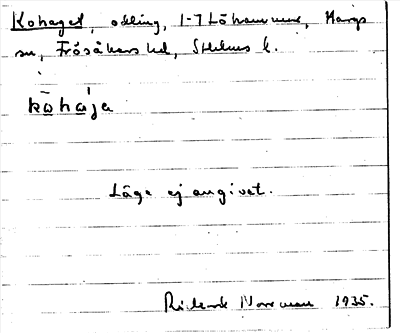 Kohaget, odling, 1-7 Löhammar, Hargs
sn, Frösåkers hd, Sthlms l.
kōhája
Läge ej angivet.
Rikard Norrman 1935.